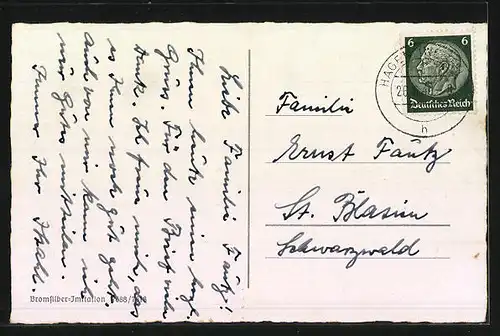 Liebe Familie Fautz!
Ihnen heute einen herzl.
Gruss. Für den Brief vielen
Dank. Ich freue mich, dass
es Ihnen noch gut geht.
auch von mir kann ich
nur Gutes mitteilen.
Immer Ihr
Bromsilber-Imitation
HAGE
6 6
Deutsches Reich
h
Familie
Ernst Fautz
St. Blasien
Schwarzwald